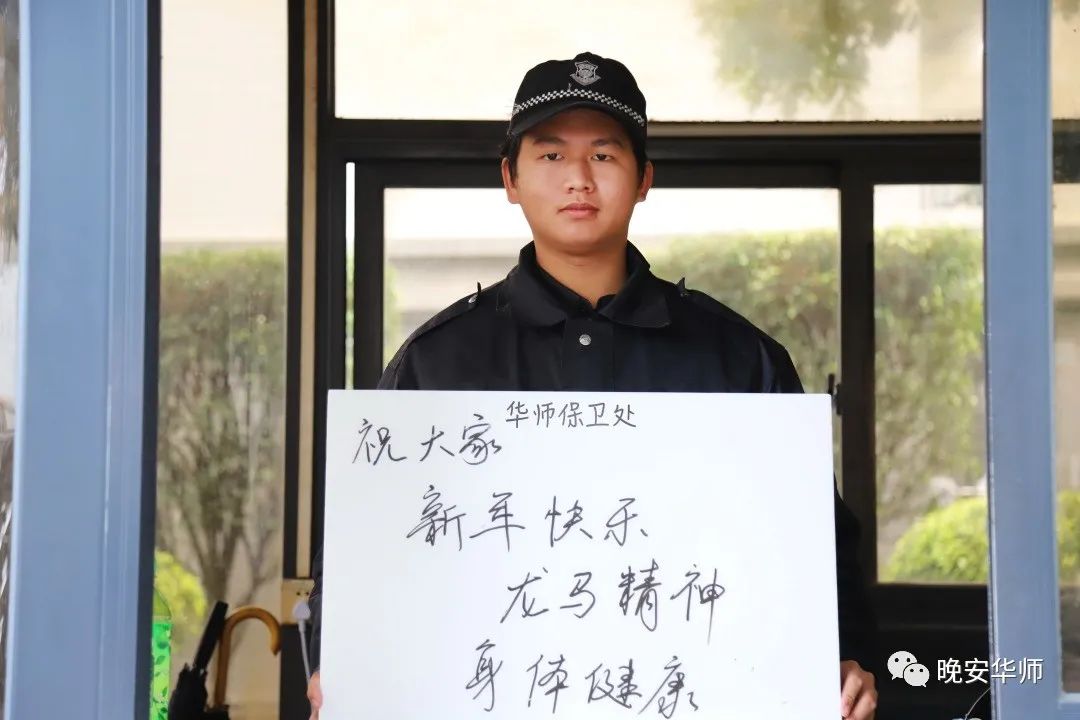 华师保卫处
祝大家
新年快乐
龙马精神
身体健康
晚安华师